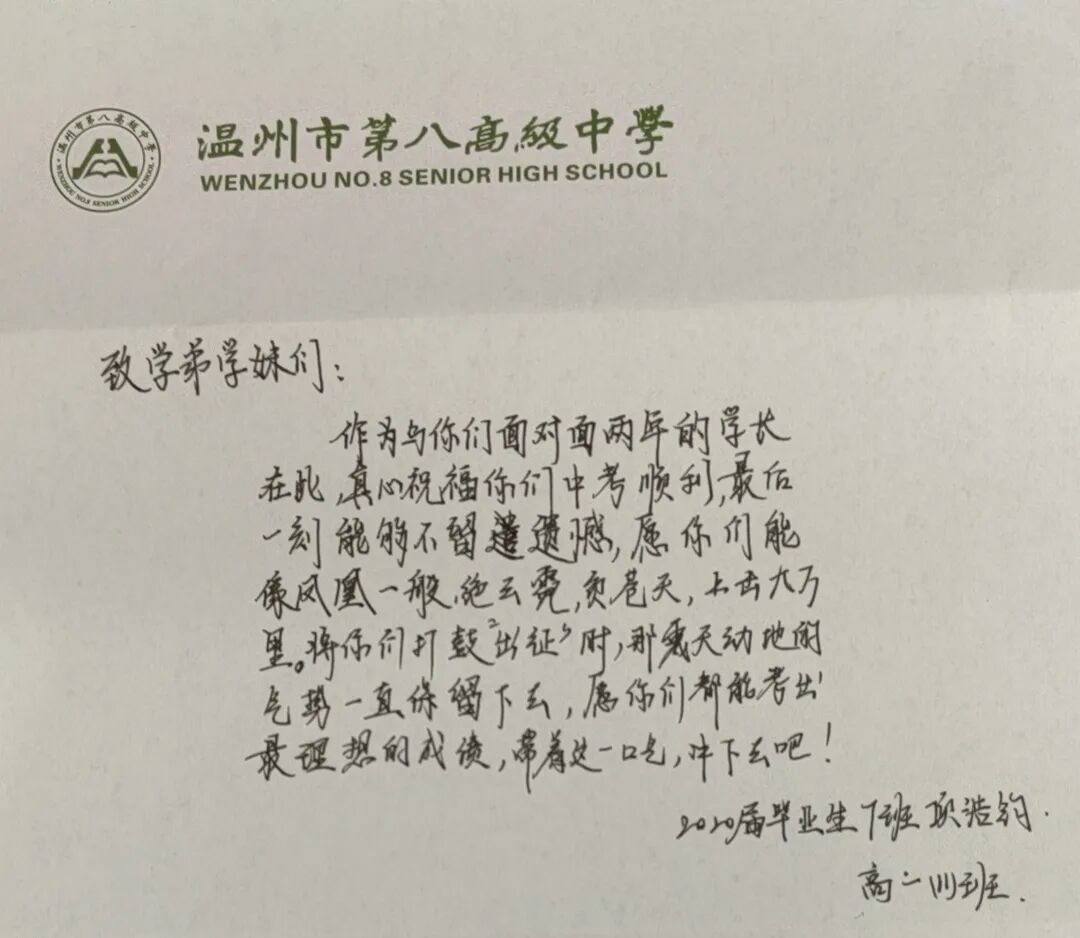 温州市第八高级中学
WENZHOU NO.8 SENIOR HIGH SCHOOL
温州市第八高级中学
WENZHOU NO.8 SENIOR HIGH SCHOOL
致学弟学妹们：
作为与你们面对面两年的学长
在此，真心祝福你们中考顺利，最后
一刻能够不留遗憾，愿你们能
像凤凰一般，绝云霓，负苍天，上击九万
里。将你们打鼓“出征”时，那震天动地的
气势一直保留下去，愿你们都能考出
最理想的成绩，带着这一口气，冲下去吧！
2020届毕业生 班 项浩钧.
高二 班.